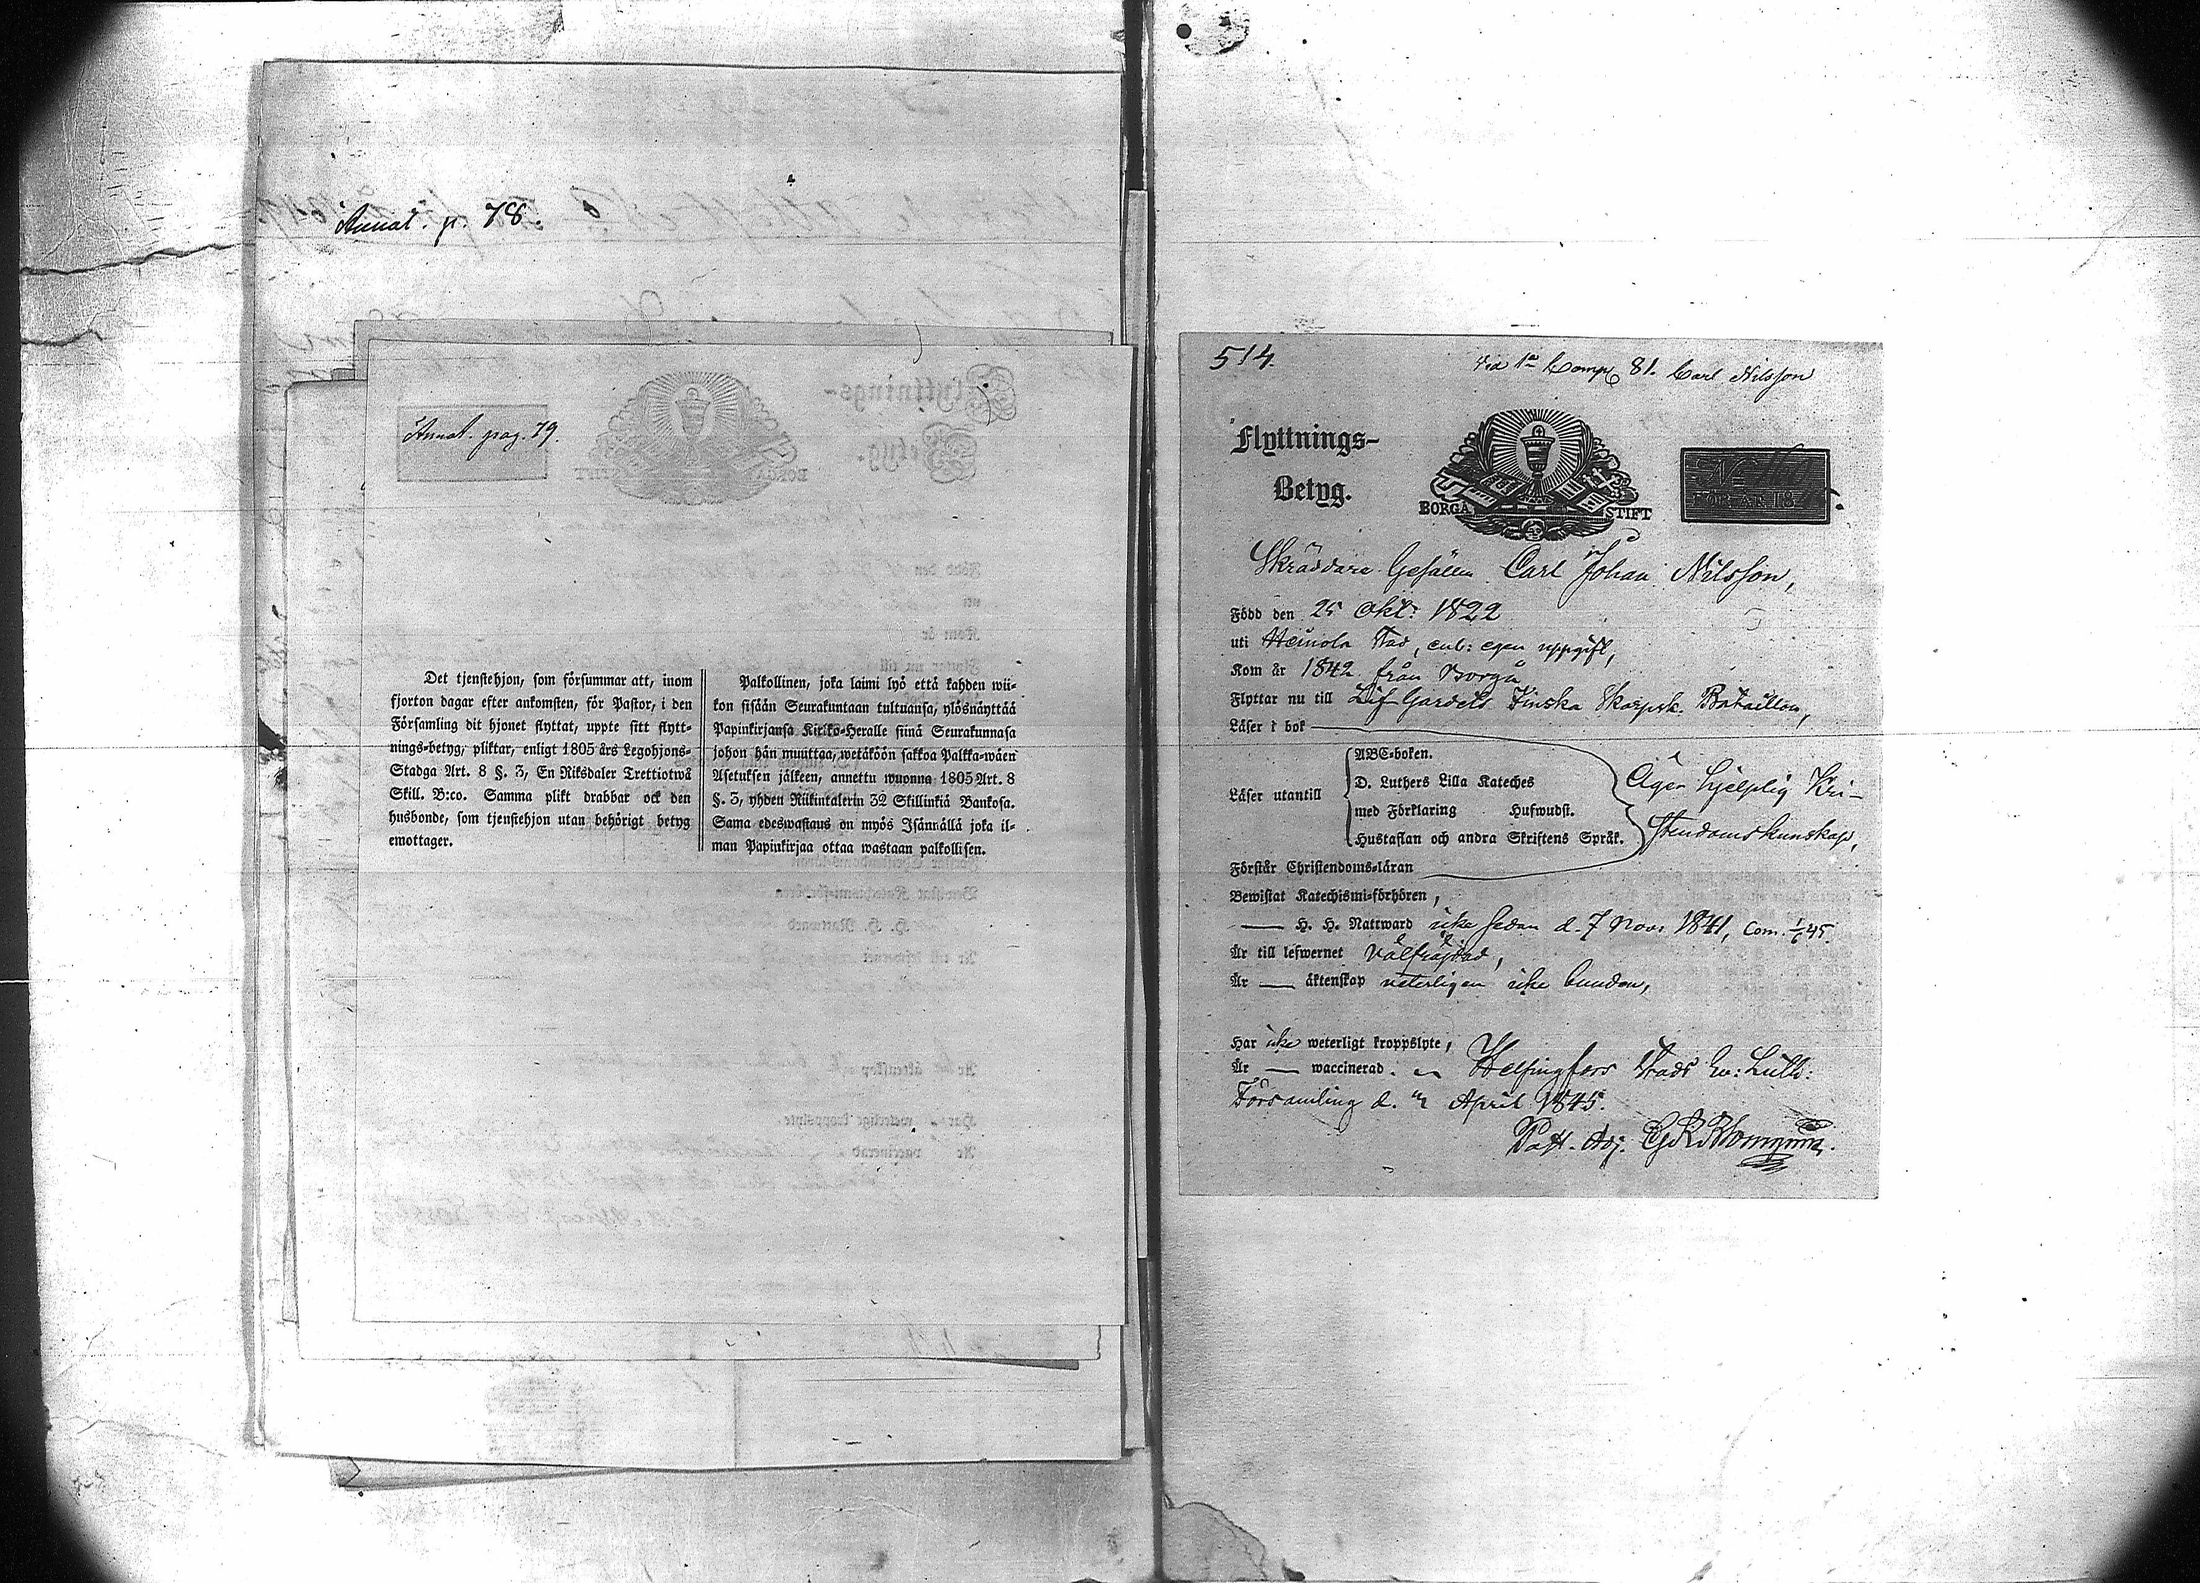 Annot. p. 78.
Annot. pag. 79.
Det tjenstehjon, som försummar att, inom
fjorton dagar efter ankomsten, för Pastor, i den
Församling dit hjonet flyttat, uppte sitt flytt-
nings-betyg, pliktar, enligt 1805 års Legohjons-
Stadga Art. 8 §. 3, En Riksdaler Trettiotwå
Skill. B:co. Samma plikt drabbar ock den
husbonde, som tjenstehjon utan behörigt betyg
emottager.
Palkollinen, joka laimi lyö että kahden wii-
kon sisään Seurakuntaan tultuansa, ylösnäyttää
Papinkirjansa Kirkko-Heralle siinä Seurakunnasa
johon hän muuttaa, wetäköön sakkoa Palkka-wäen
Asetuksen jälkeen, annettu wuonna 1805 Art. 8
§. 3, yhden Riikintalerin 32 Skillinkiä Bankosa.
Sama edeswastaus on myös Isännällä joka il-
man Papinkirjaa ottaa wastaan palkollisen.
514.
via 1a Comp 81. Carl Nilsson
Flyttnings-
Betyg.
BORGÅ STIFT
No
FÖR ÅR 18
Skräddare Gesällen Carl Johan Nilsson,
Född den 25 Okt: 1822
uti Heinola Stad, enl: egen uppgift,
Kom år 1842 från Borgå
Flyttar nu till Lif Gardets Finska Skarpsk. Bataillon,
Läser i bok
ABC-boken.
D. Luthers Lilla Kateches
Läser utantill
med Förklaring Hufwudst.
Hustaflan och andra Skriftens Språk.
Äger hjelplig Kri-
stendomskunskap,
Förstår Christendoms-läran
Bewistat Katechismi-förhören,
— H. H. Nattward icke sedan d. 7 Nov: 1841, Com. 1/6 45.
Är till lefwernet välfräjdad,
Är — äktenskap veterligen icke bunden,
Har icke weterligt kroppslyte,
Är — waccinerad. Helsingfors Stads Ev: Luth:
Församling d. April 1845.
Past. Adj. G R Blomqvist.